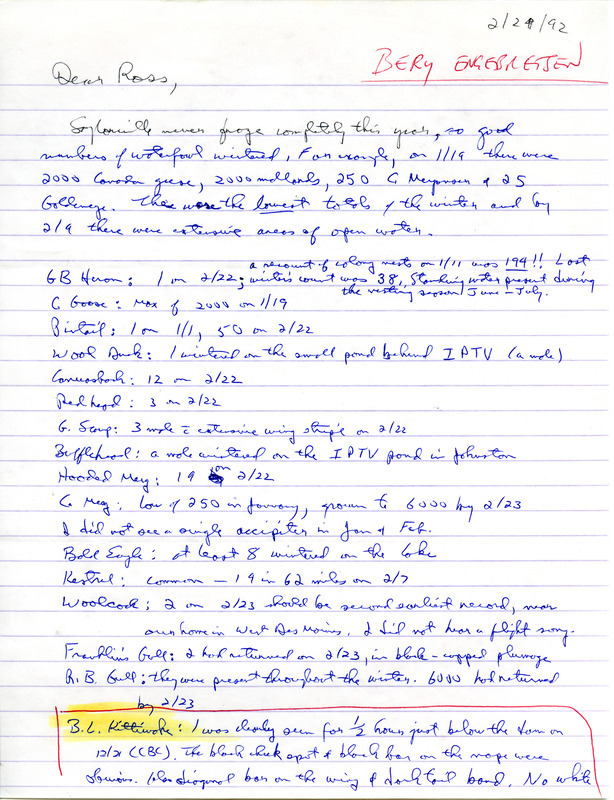 2/24/92
BERY ENGEBRETSEN
Dear Ross,
Saylorville never froze completely this year, so good
numbers of waterfowl wintered. For example, on 1/19 there were
2000 Canada geese, 2000 mallards, 250 C Merganser & 25
Goldeneye. These were the lowest totals of the winter and by
2/9 there were extensive areas of open water.
a recount of colony nests on 1/11 was 194!! Last
GB Heron: 1 on 2/22; winter's count was 38, Standing water present during
the nesting season June - July.
C Goose: Max of 2000 on 1/19
Pintail: 1 on 1/1, 50 on 2/22
Wood Duck: 1 wintered on the small pond behind IPTV (a male)
Canvasback: 12 on 2/22
Redhead: 3 on 2/22
G. Scaup: 3 male c extensive wing stripe on 2/22
Bufflehead: a male wintered on the IPTV pond in Johnston
Hooded Merg: 19 on 2/22
C Merg: low of 250 in January, grown to 6000 by 2/23
I did not see a single accipiter in Jan & Feb.
Bald Eagle: at least 8 wintered on the lake
Kestrel: common - 19 in 62 miles on 2/7
Woodcock: 2 on 2/23 should be second earliest record, near
our home in West Des Moines. I did not hear a flight song.
Franklin's Gull: 2 had returned on 2/23, in black-capped plumage
R.B. Gull: they were present throughout the winter. 6000 had returned
by 2/23
B.L. Kittiwake: 1 was clearly seen for 1/2 hours just below the dam on
12/21 (CBC). The black cheek spot & black bar on the nape were
obvious. Also diagonal bar on the wing & dark tail band. No white